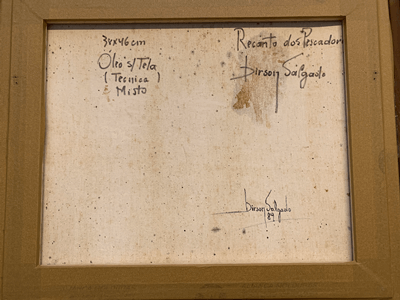 34x46cm
Óleo s/Tela
(Tecnica)
Misto
Recanto dos Pescador
Dirson Salgado
Dirson Salgado
89